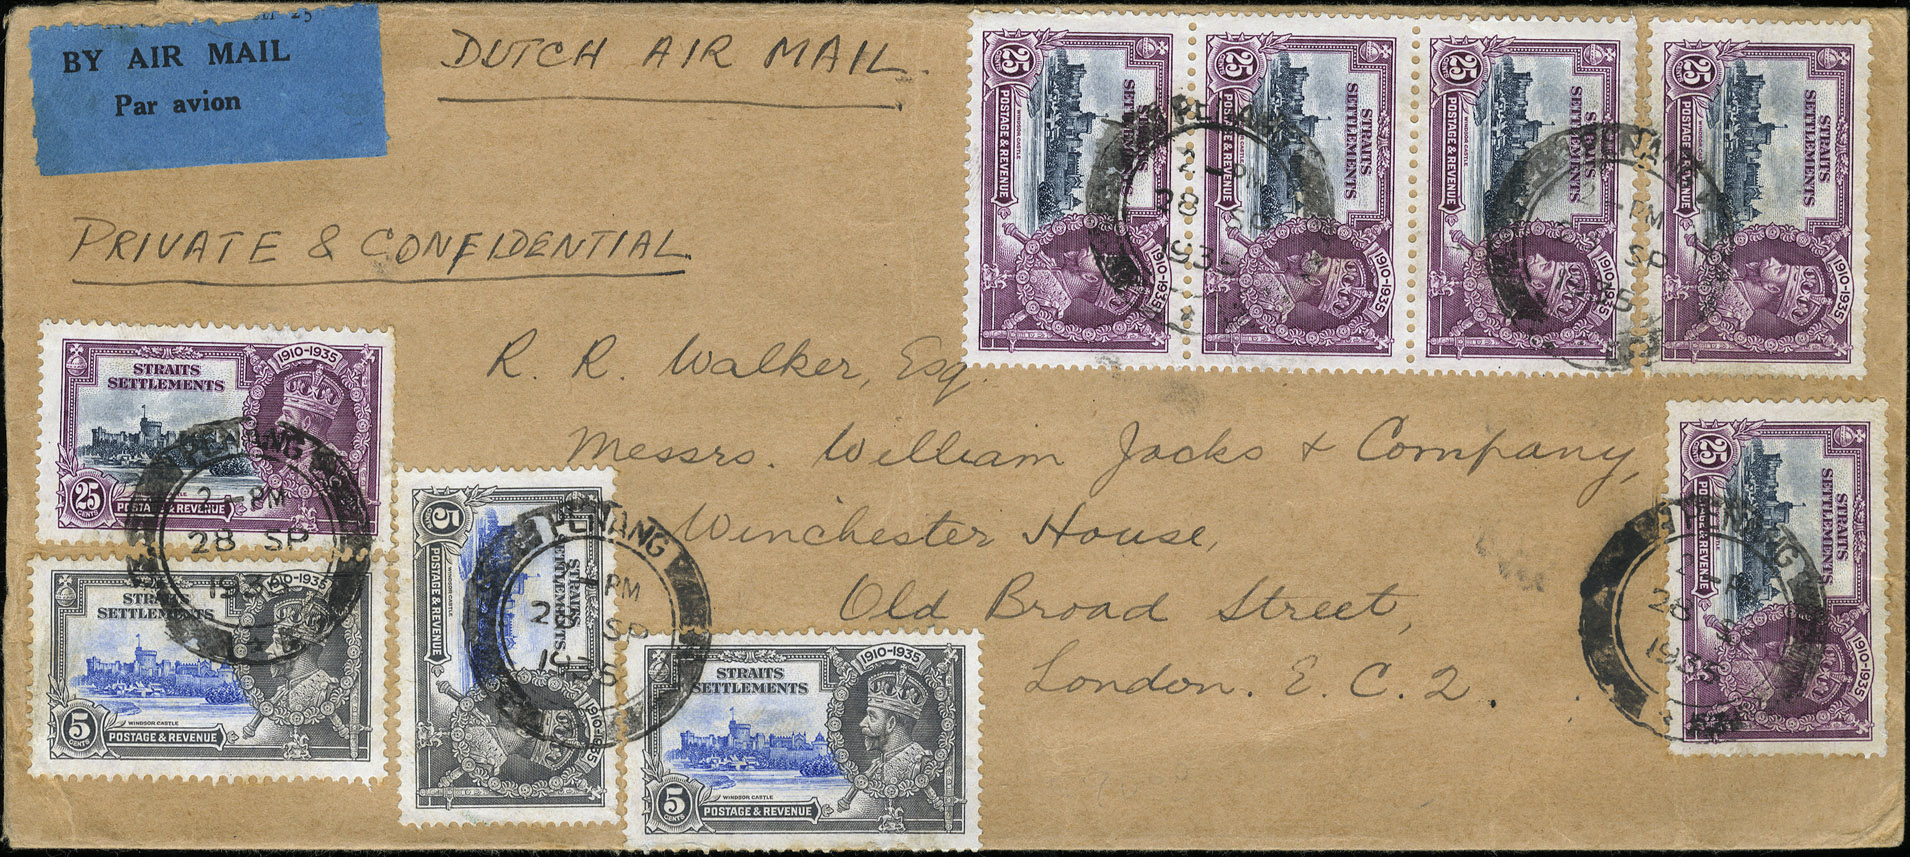 BY AIR MAIL
Par avion
DUTCH AIR MAIL.
PRIVATE & CONFIDENTIAL
R. R. Walker, Esq.
Messrs. William Jacks & Company,
Winchester House,
Old Broad Street,
London. E. C. 2.
25 CENTS
STRAITS SETTLEMENTS
POSTAGE & REVENUE
WINDSOR CASTLE
1910-1935
25 CENTS
STRAITS SETTLEMENTS
POSTAGE & REVENUE
1910-1935
25 CENTS
STRAITS SETTLEMENTS
POSTAGE & REVENUE
WINDSOR CASTLE
1910-1935
25 CENTS
STRAITS SETTLEMENTS
POSTAGE & REVENUE
WINDSOR CASTLE
1910-1935
PENANG
2-PM
28 SP
1935
PENANG
2-PM
SP
35
1910-1935
STRAITS
SETTLEMENTS
25 CENTS
POSTAGE & REVENUE
PENANG
2-PM
28 SP
193
1910-1935
STRAITS
SETTLEMENTS
WINDSOR CASTLE
5 CENTS
POSTAGE & REVENUE
5 CENTS
STRAITS SETTLEMENTS
POSTAGE & REVENUE
WINDSOR CASTLE
1910-1935
PENANG
PM
2 SP
1935
1910-1935
STRAITS
SETTLEMENTS
WINDSOR CASTLE
5 CENTS
POSTAGE & REVENUE
25 CENTS
STRAITS SETTLEMENTS
POSTAGE & REVENUE
1910-1935
PENANG
2-P
28
1935